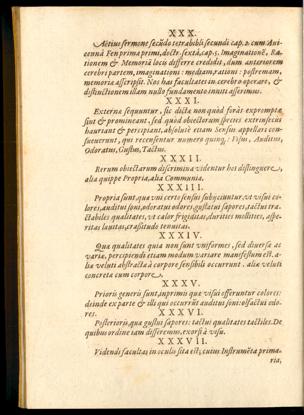 XXX.
Aëtius sermone secũdo tetrabibli secundi cap. 2. cum Aui-
cenna Fen prima primi, doctr. sexta, cap. 5. Imaginationẽ, Ra-
tionem & Memoriã locis differre credidit, dum anteriorem
cerebri partem, imaginationi: mediam, rationi: postremam,
memoriæ assripsit. Nos has facultates in cerebro operare, &
distinctionem illam nullo fundamento inniti asserimus.
XXXI.
Externæ sequuntur, sic dictæ non quòd foràs expromptæ
sint & promineant, sed quòd obiectorum species extrinsecus
hauriant & percipiant, absolutè etiam Sensus appellari con-
sueuerunt, qui recensentur numero quinq;: Visus, Auditus,
Odoratus, Gustus, Tactus.
XXXII.
Rerum obiectarum discrimina videntur hos distinguere,
alia quippe Propria, alia Communia.
XXXIII.
Propria sunt, quæ vni certo sensui subijciuntur, vt visui co-
lores, auditui soni, odoratui odores, gustatui sapores, tactui tra-
ctabiles qualitates, vt calor frigiditas, durities mollities, aspe-
ritas lauitas, crassitudo tenuitas.
XXXIV.
Quæ qualitates quia non sunt vniformes, sed diuersæ ac
variæ, percipiendi etiam modum variare manifestum est. a-
liæ veluti abstractæ à corpore sensibili occurrunt. aliæ velut
concretæ cum corpore.
XXXV.
Prioris generis sunt, inprimis quæ visui offeruntur colores:
deinde ex parte & illi qui occurrit auditui soni: olfactui odo-
res.
XXXVI.
Posterioris, quæ gustui sapores: tactui qualitates tactiles. De
quibus ordine iam differemus, exorsi à visu.
XXXVII.
Videndi facultas in oculis sita est, cuius Instrumẽta prima-
ria,